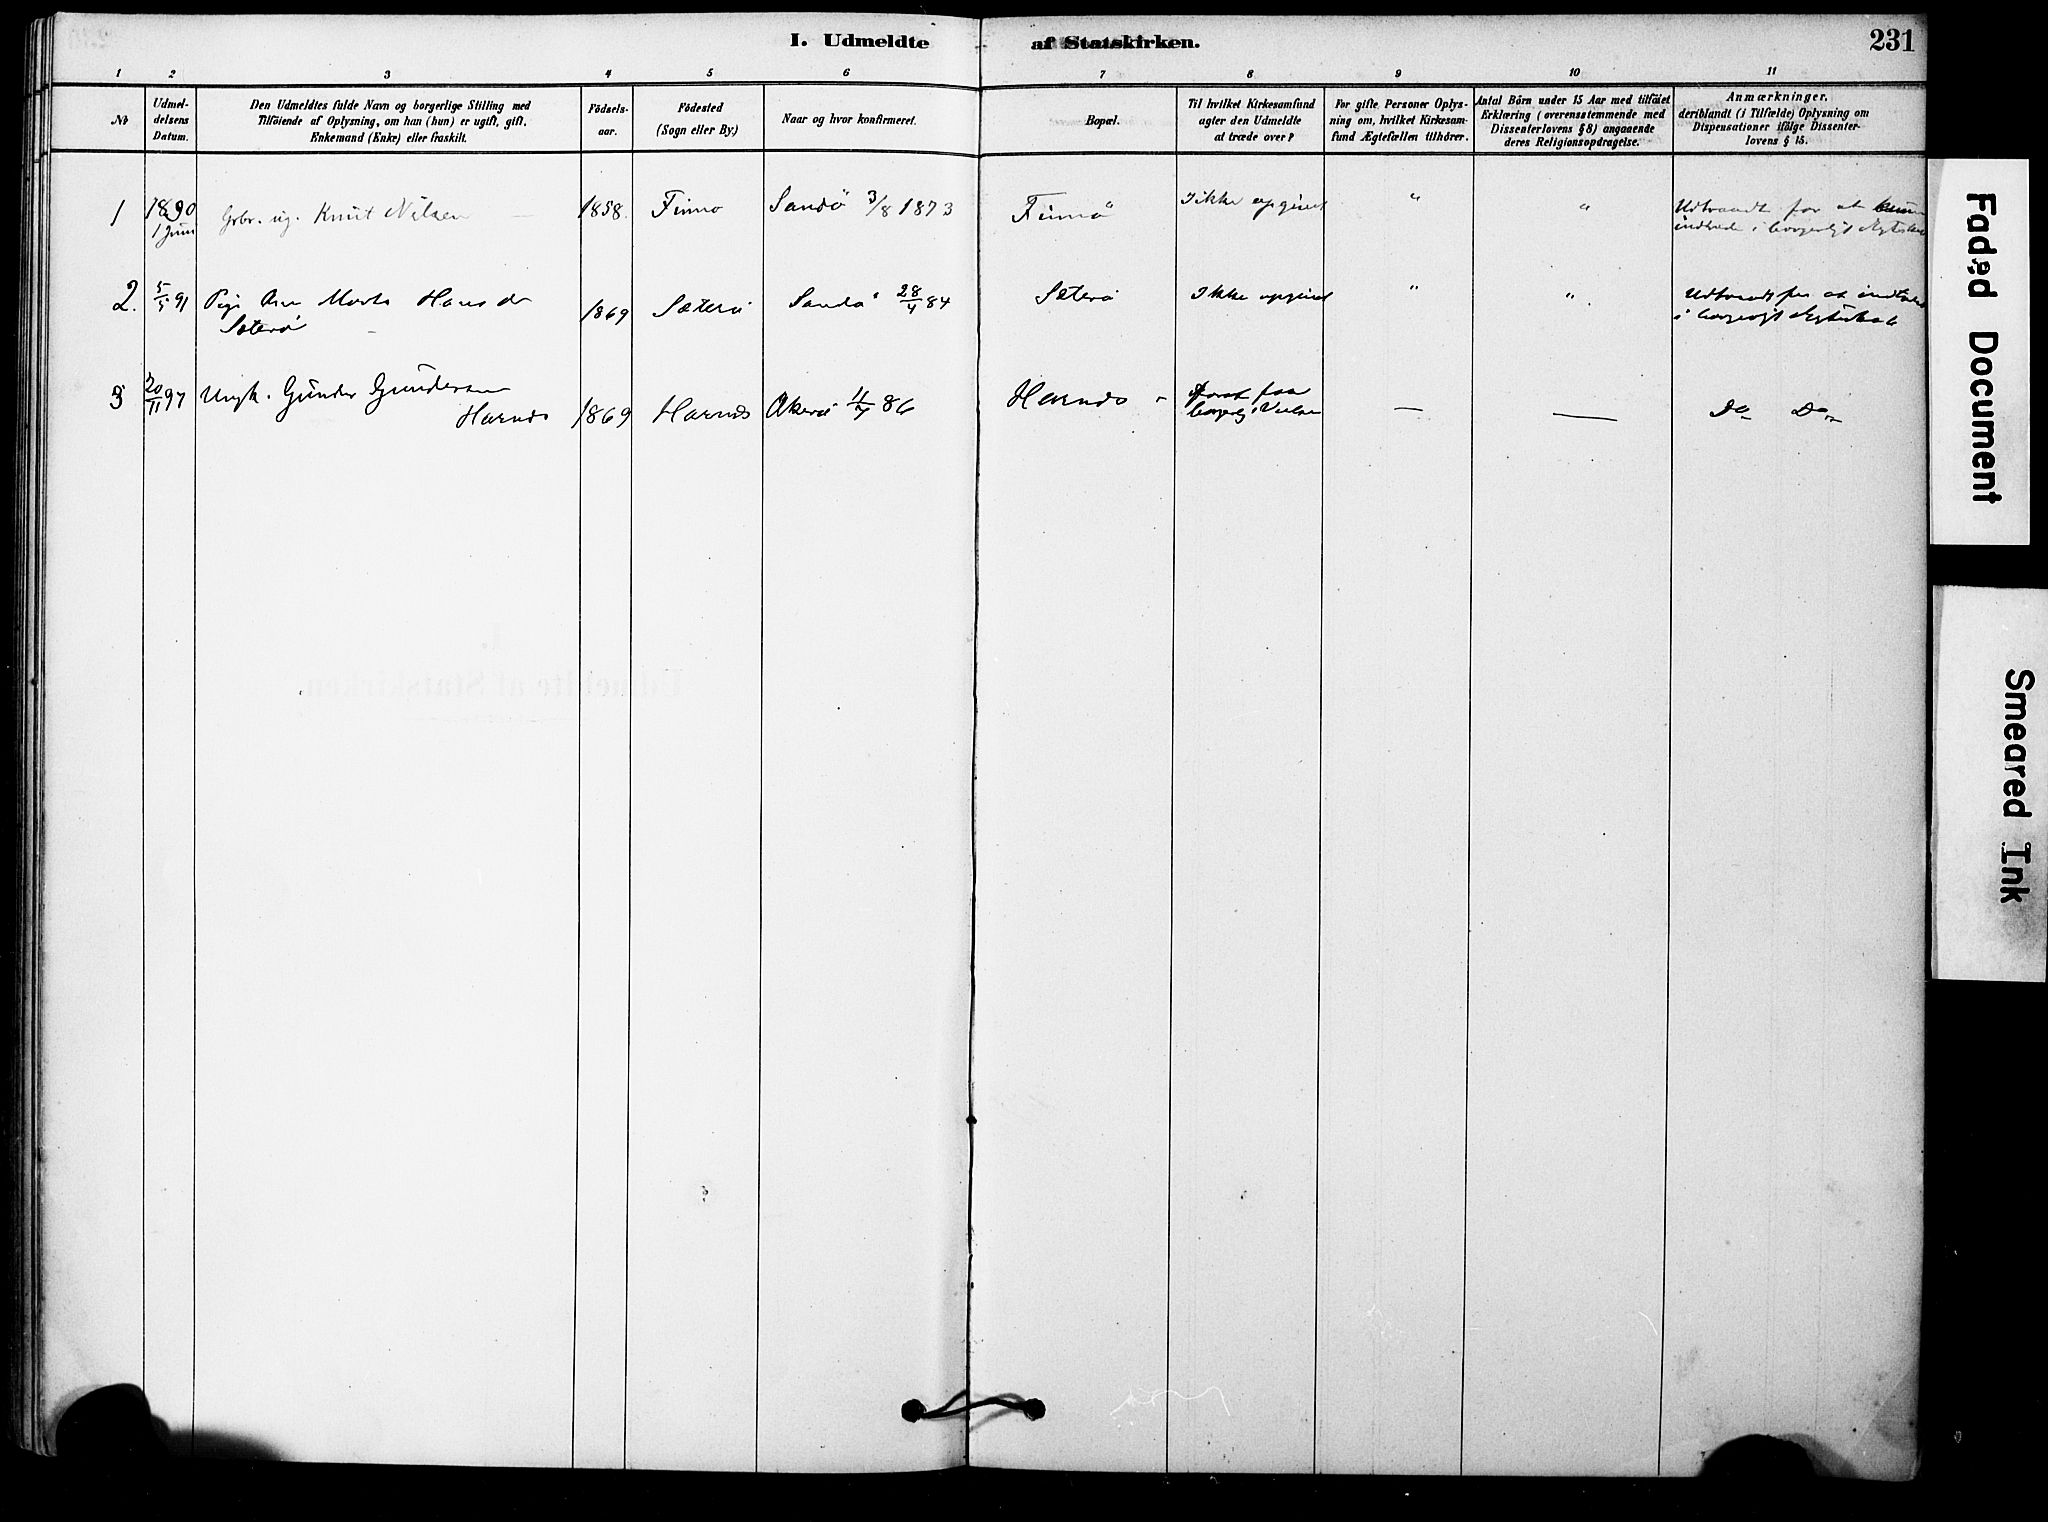 I. Udmeldte af Statskirken.
231
1 2 3 4 5 6 7 8 9 10 11
No
Udmel-
delsens
Datum.
Den Udmeldtes fulde Navn og borgerlige Stilling med
Tilföiende af Oplysning, om han (hun) er ugift, gift,
Enkemand (Enke) eller fraskilt.
Födsels-
aar.
Födested
(Sogn eller By.)
Naar og hvor konfirmeret.
Bopæl.
Til hvilket Kirkesamfund
agter den Udmeldte
at træde over?
For gifte Personer Oplys-
ning om, hvilket Kirkesam-
fund Ægtefællen tilhörer.
Antal Börn under 15 Aar med tilföiet
Erklæring (overensstemmende med
Dissenterlovens § 8) angaaende
deres Religionsopdragelse.
Anmærkninger,
deriblandt (i Tilfælde) Oplysning om
Dispensationer ifölge Dissenter-
lovens § 15.
1
1890
1 Juni
Gbr. ug. Knut Nilsen
1858.
Finnö
Sandö 3/8 1873
Finnö
Ikke opgivet
"
"
Udtraadt for at
indtræde i borgerligt Ægteskab
2.
5/5 91
Pige Ane Marta Hansd.
Sæterö
1869
Sæterö
Sandö 28/4 84
Sæterö
Ikke opgivet
"
"
Udtraadt for at indtræde
i borgerligt Ægteskab
3
20/11 97
Ungk. Gunder Gundersen
Harnæs
1869
Harnæs
Akerö 11/7 86
Harnæs
for at faa
borgerlig Vielse
—
—
Do Do
Faded Document
Smeared Ink